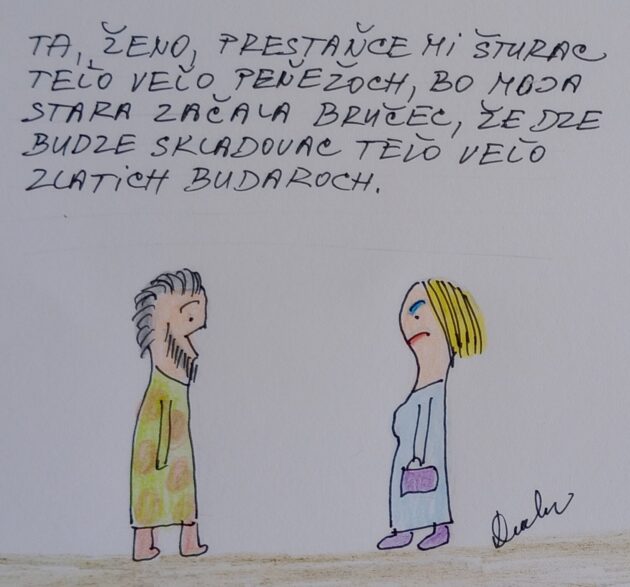 TA, ŽENO, PRESTAŇCE MI ŠTURAC
TEĽO VEĽO PEŇEŽOCH, BO MOJA
STARA ZAČALA BRUČEC, ŽE DZE
BUDZE SKLADOVAC TEĽO VEĽO
ZLATICH BUDAROCH.